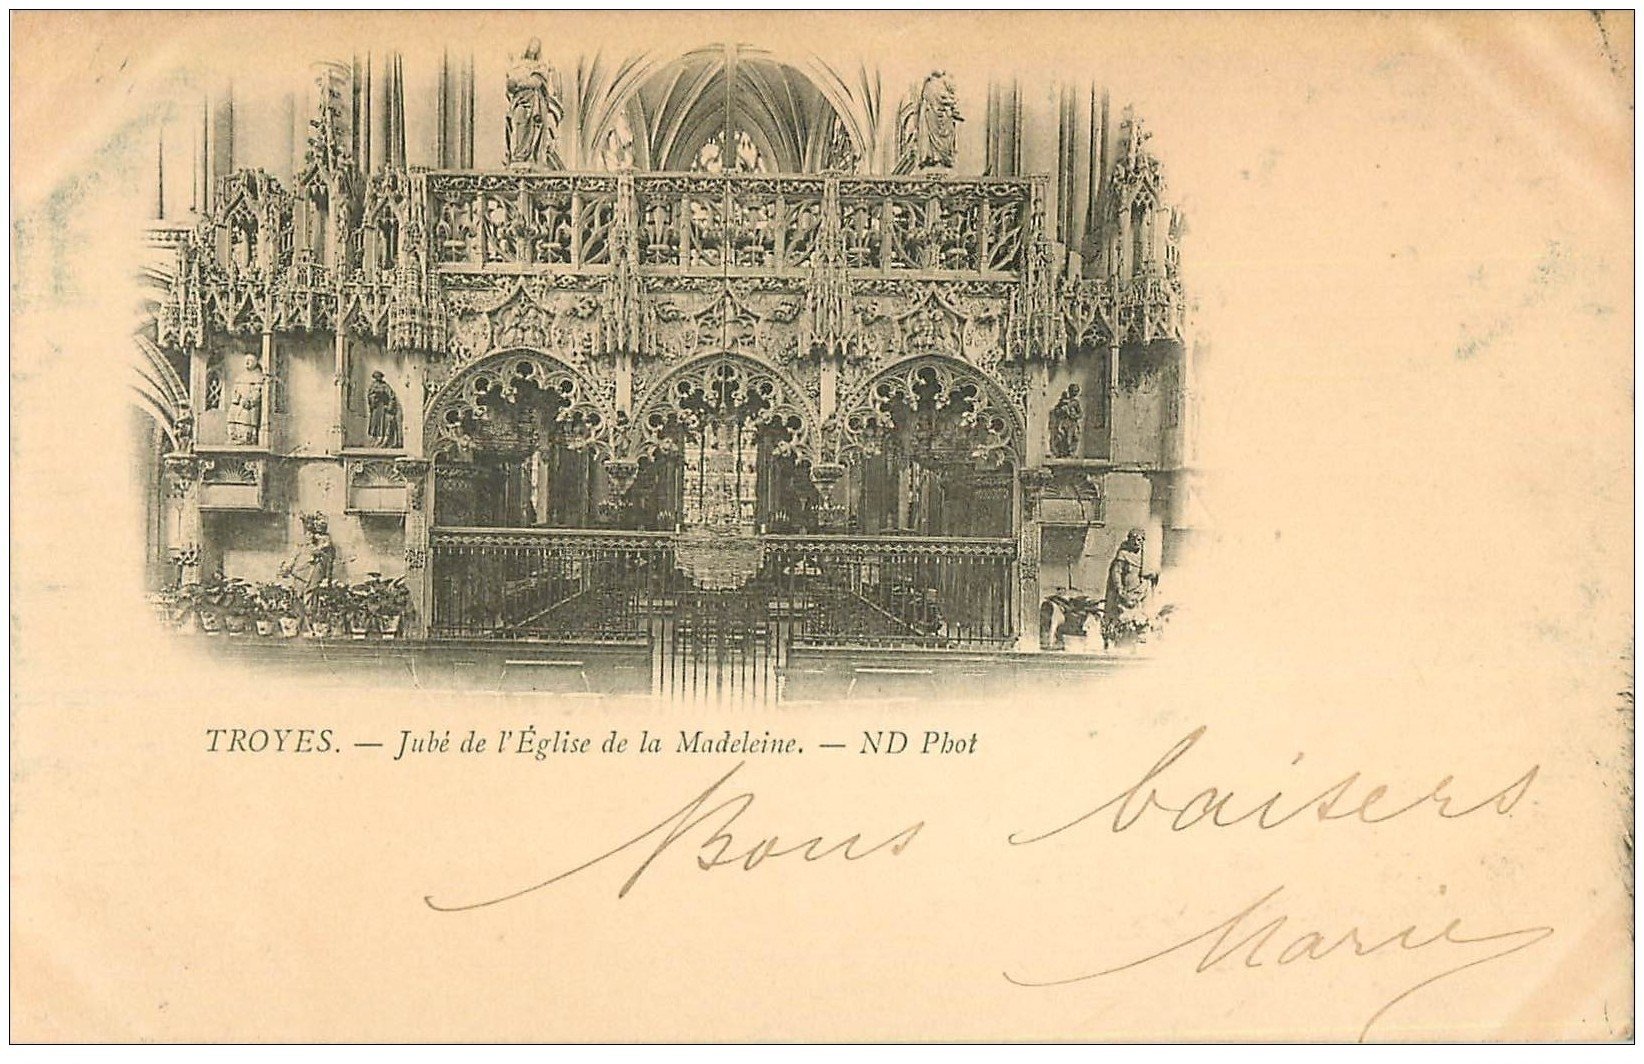 TROYES. — Jubé de l'Église de la Madeleine. — ND Phot
Bons baisers
Marie